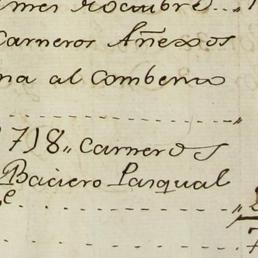 mes Noviembre
Carneros Añexos
na al Combento
718,, Carneros
Baciero Pasqual